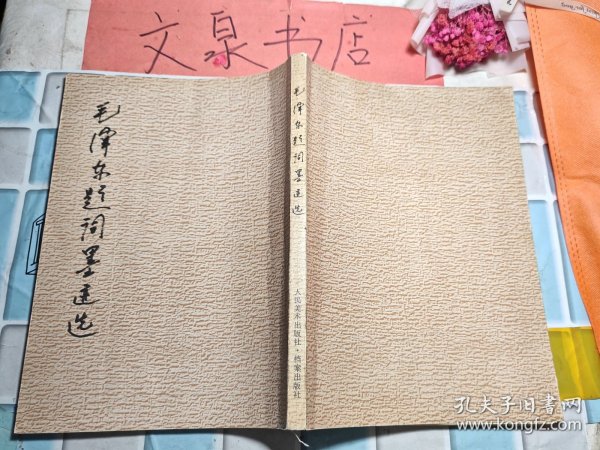 文泉书店
毛泽东题词墨迹选
毛泽东题词墨迹选
人民美术出版社·档案出版社
孔夫子旧书网
www.kongfz.com